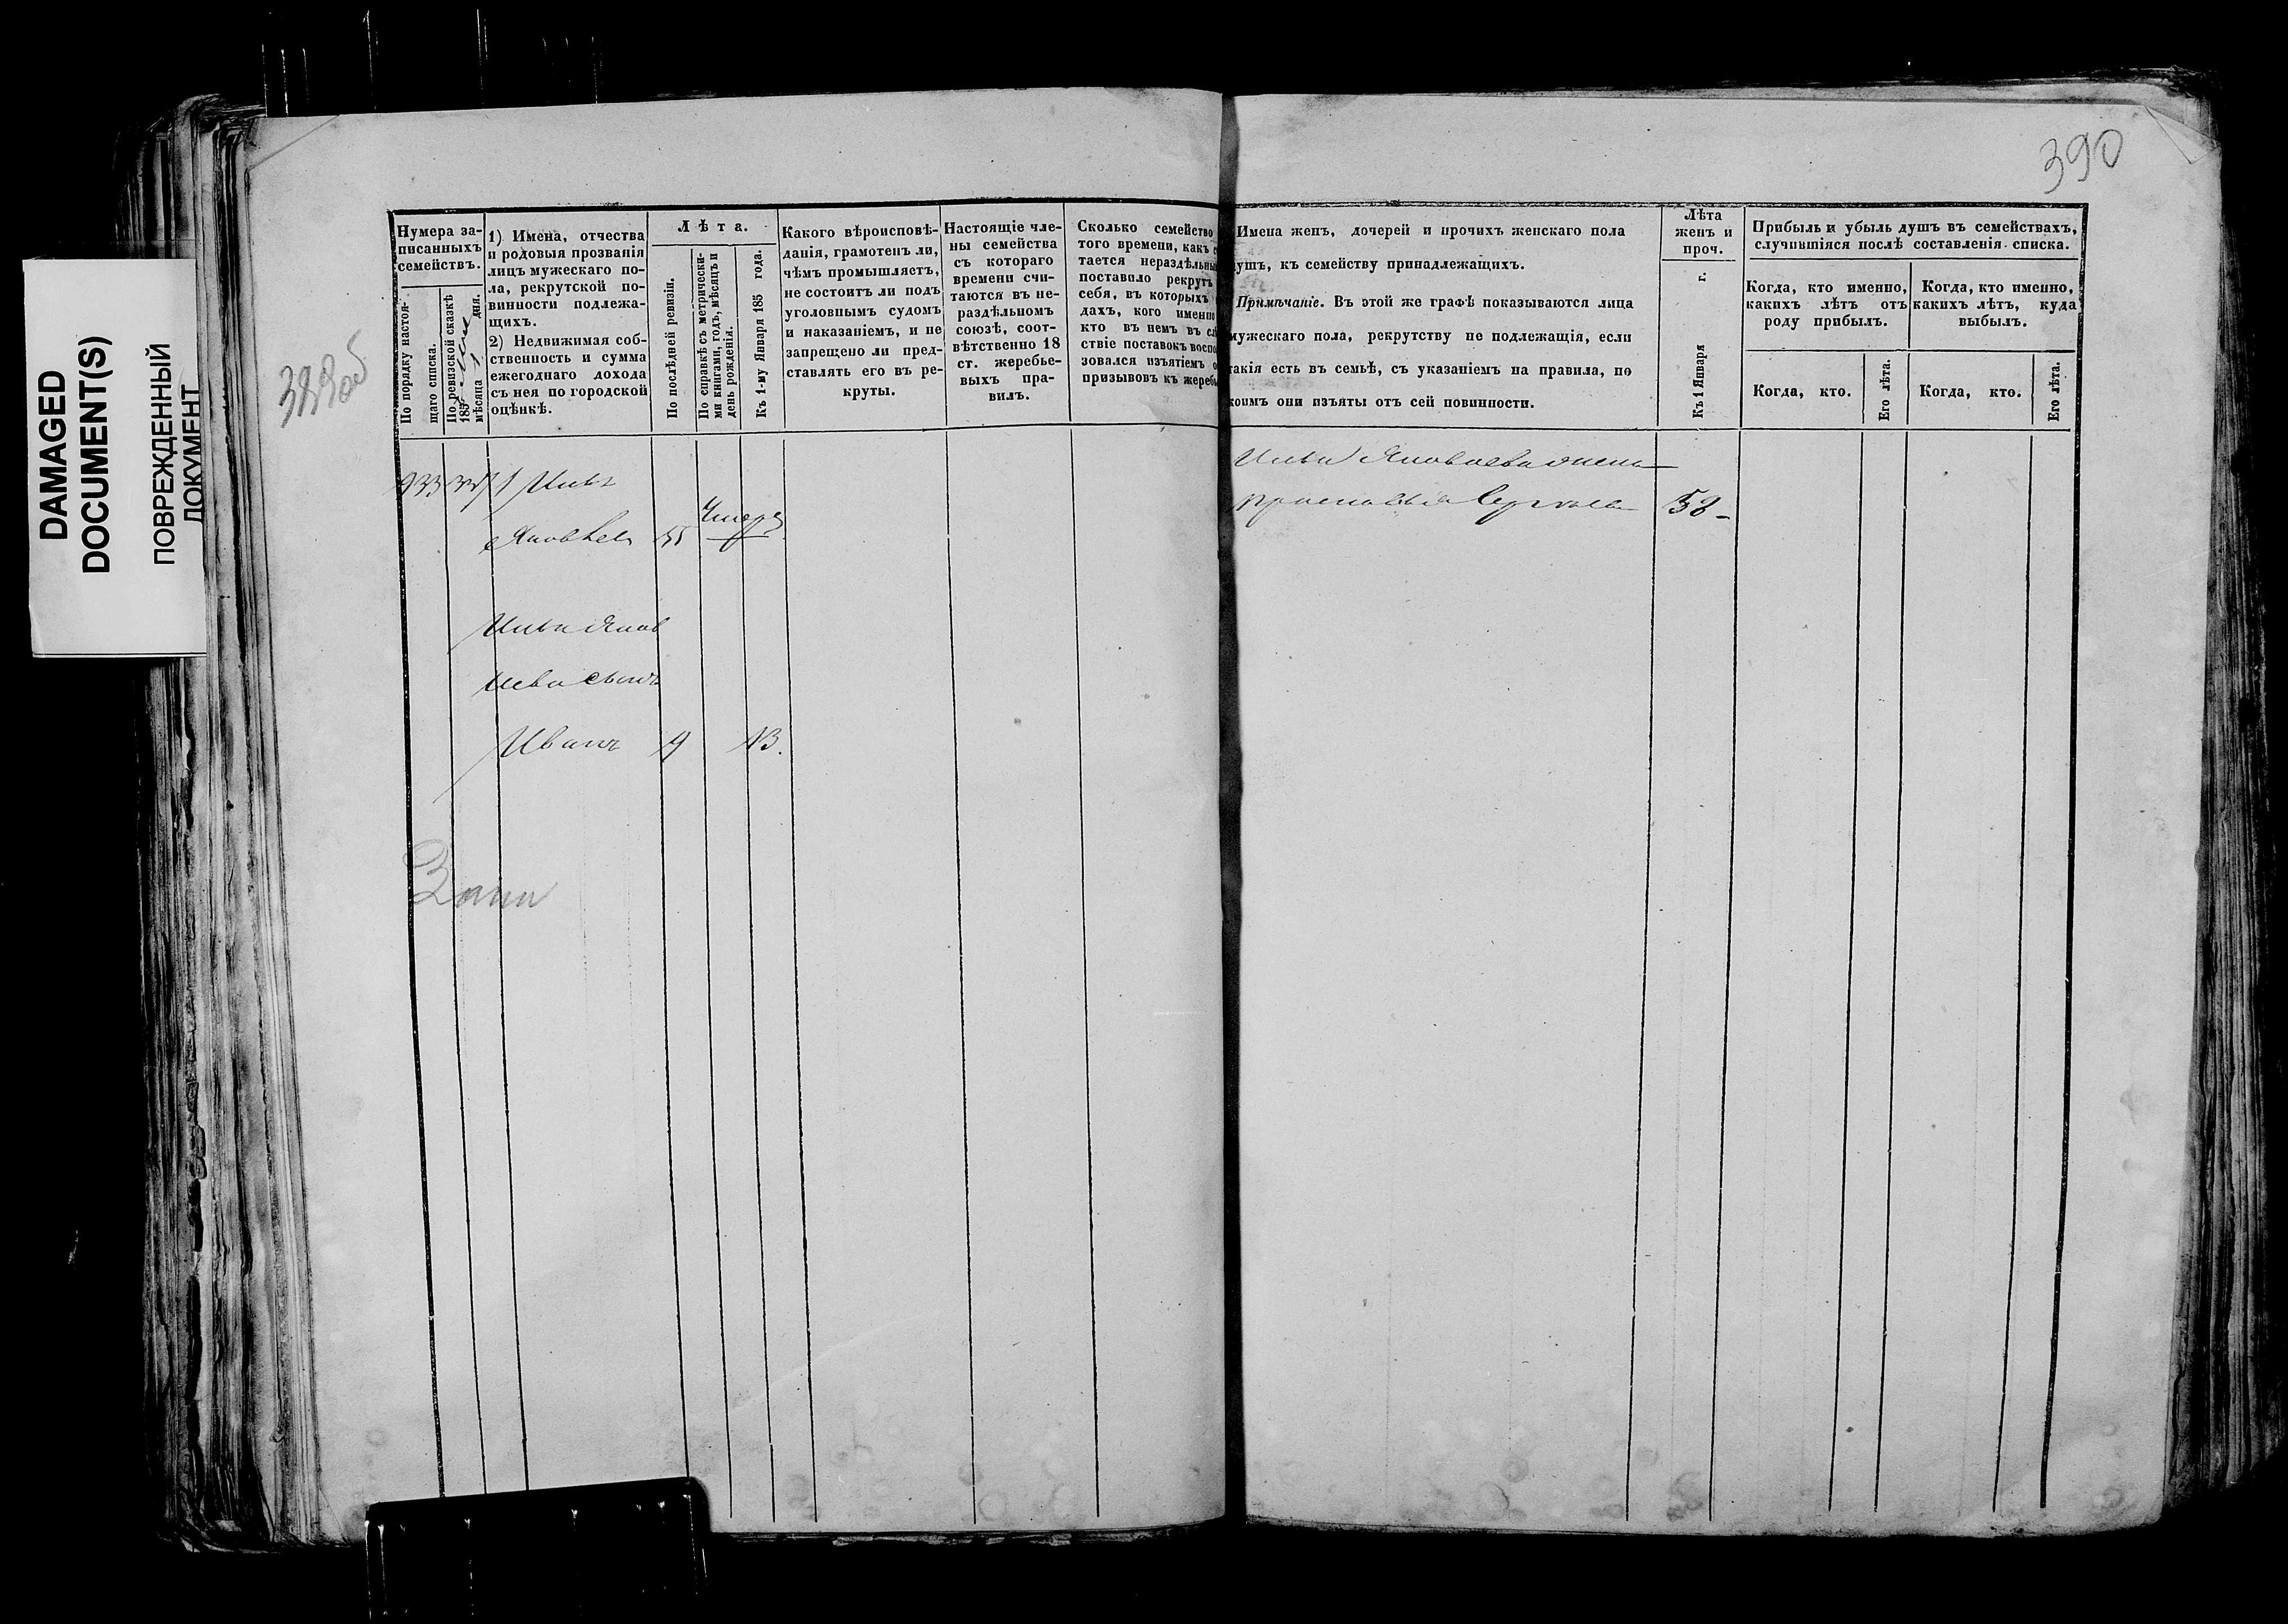 DAMAGED
DOCUMENT(S)
ПОВРЕЖДЕННЫЙ
ДОКУМЕНТ
390
Нумера за-
писанныхъ
семействъ.
По порядку настоя-
щаго списка.
По ревизской сказкѣ
185
мѣсяца дня.
1) Имена, отчества
и родовыя прозванія
лицъ мужескаго по-
ла, рекрутской по-
винности подлежа-
щихъ.
2) Недвижимая соб-
ственность и сумма
ежегоднаго дохода
съ нея по городской
оцѣнкѣ.
Лѣта.
По послѣдней ревизіи.
По справкѣ съ метрически-
ми книгами, годъ, мѣсяцъ и
день рожденія.
Къ 1-му Января 185 года.
Какого вѣроисповѣ-
данія, грамотенъ ли,
чѣмъ промышляетъ,
не состоитъ ли подъ
уголовнымъ судомъ
и наказаніемъ, и не
запрещено ли пред-
ставлять его въ ре-
круты.
Настоящіе чле-
ны семейства
съ котораго
времени счи-
таются въ не-
раздѣльномъ
союзѣ, соот-
вѣтственно 18
ст. жеребье-
выхъ пра-
вилъ.
Сколько семейство
того времени, какъ с
тается нераздѣльны
поставило рекрутъ
себя, въ которыхъ
дахъ, кого именно
кто въ немъ въ сл
ствіе поставокъ воспо
зовался изъятіемъ о
призывовъ къ жеребь
Имена женъ, дочерей и прочихъ женскаго пола
душъ, къ семейству принадлежащихъ.
Примѣчаніе. Въ этой же графѣ показываются лица
мужескаго пола, рекрутству не подлежащія, если
такія есть въ семьѣ, съ указаніемъ на правила, по
коимъ они изъяты отъ сей повинности.
Лѣта
женъ и
проч.
Къ 1 Января г.
Прибыль и убыль душъ въ семействахъ,
случившіяся послѣ составленія списка.
Когда, кто именно,
какихъ лѣтъ отъ
роду прибылъ.
Когда, кто. Его лѣта.
Когда, кто именно,
какихъ лѣтъ, куда
выбылъ.
Когда, кто. Его лѣта.
933 Илья
Яковлев 55 Умеръ
Ильи Яков
лева сынъ
Иванъ 4 13.
Ильи Яковлева жена
Прасковья 58